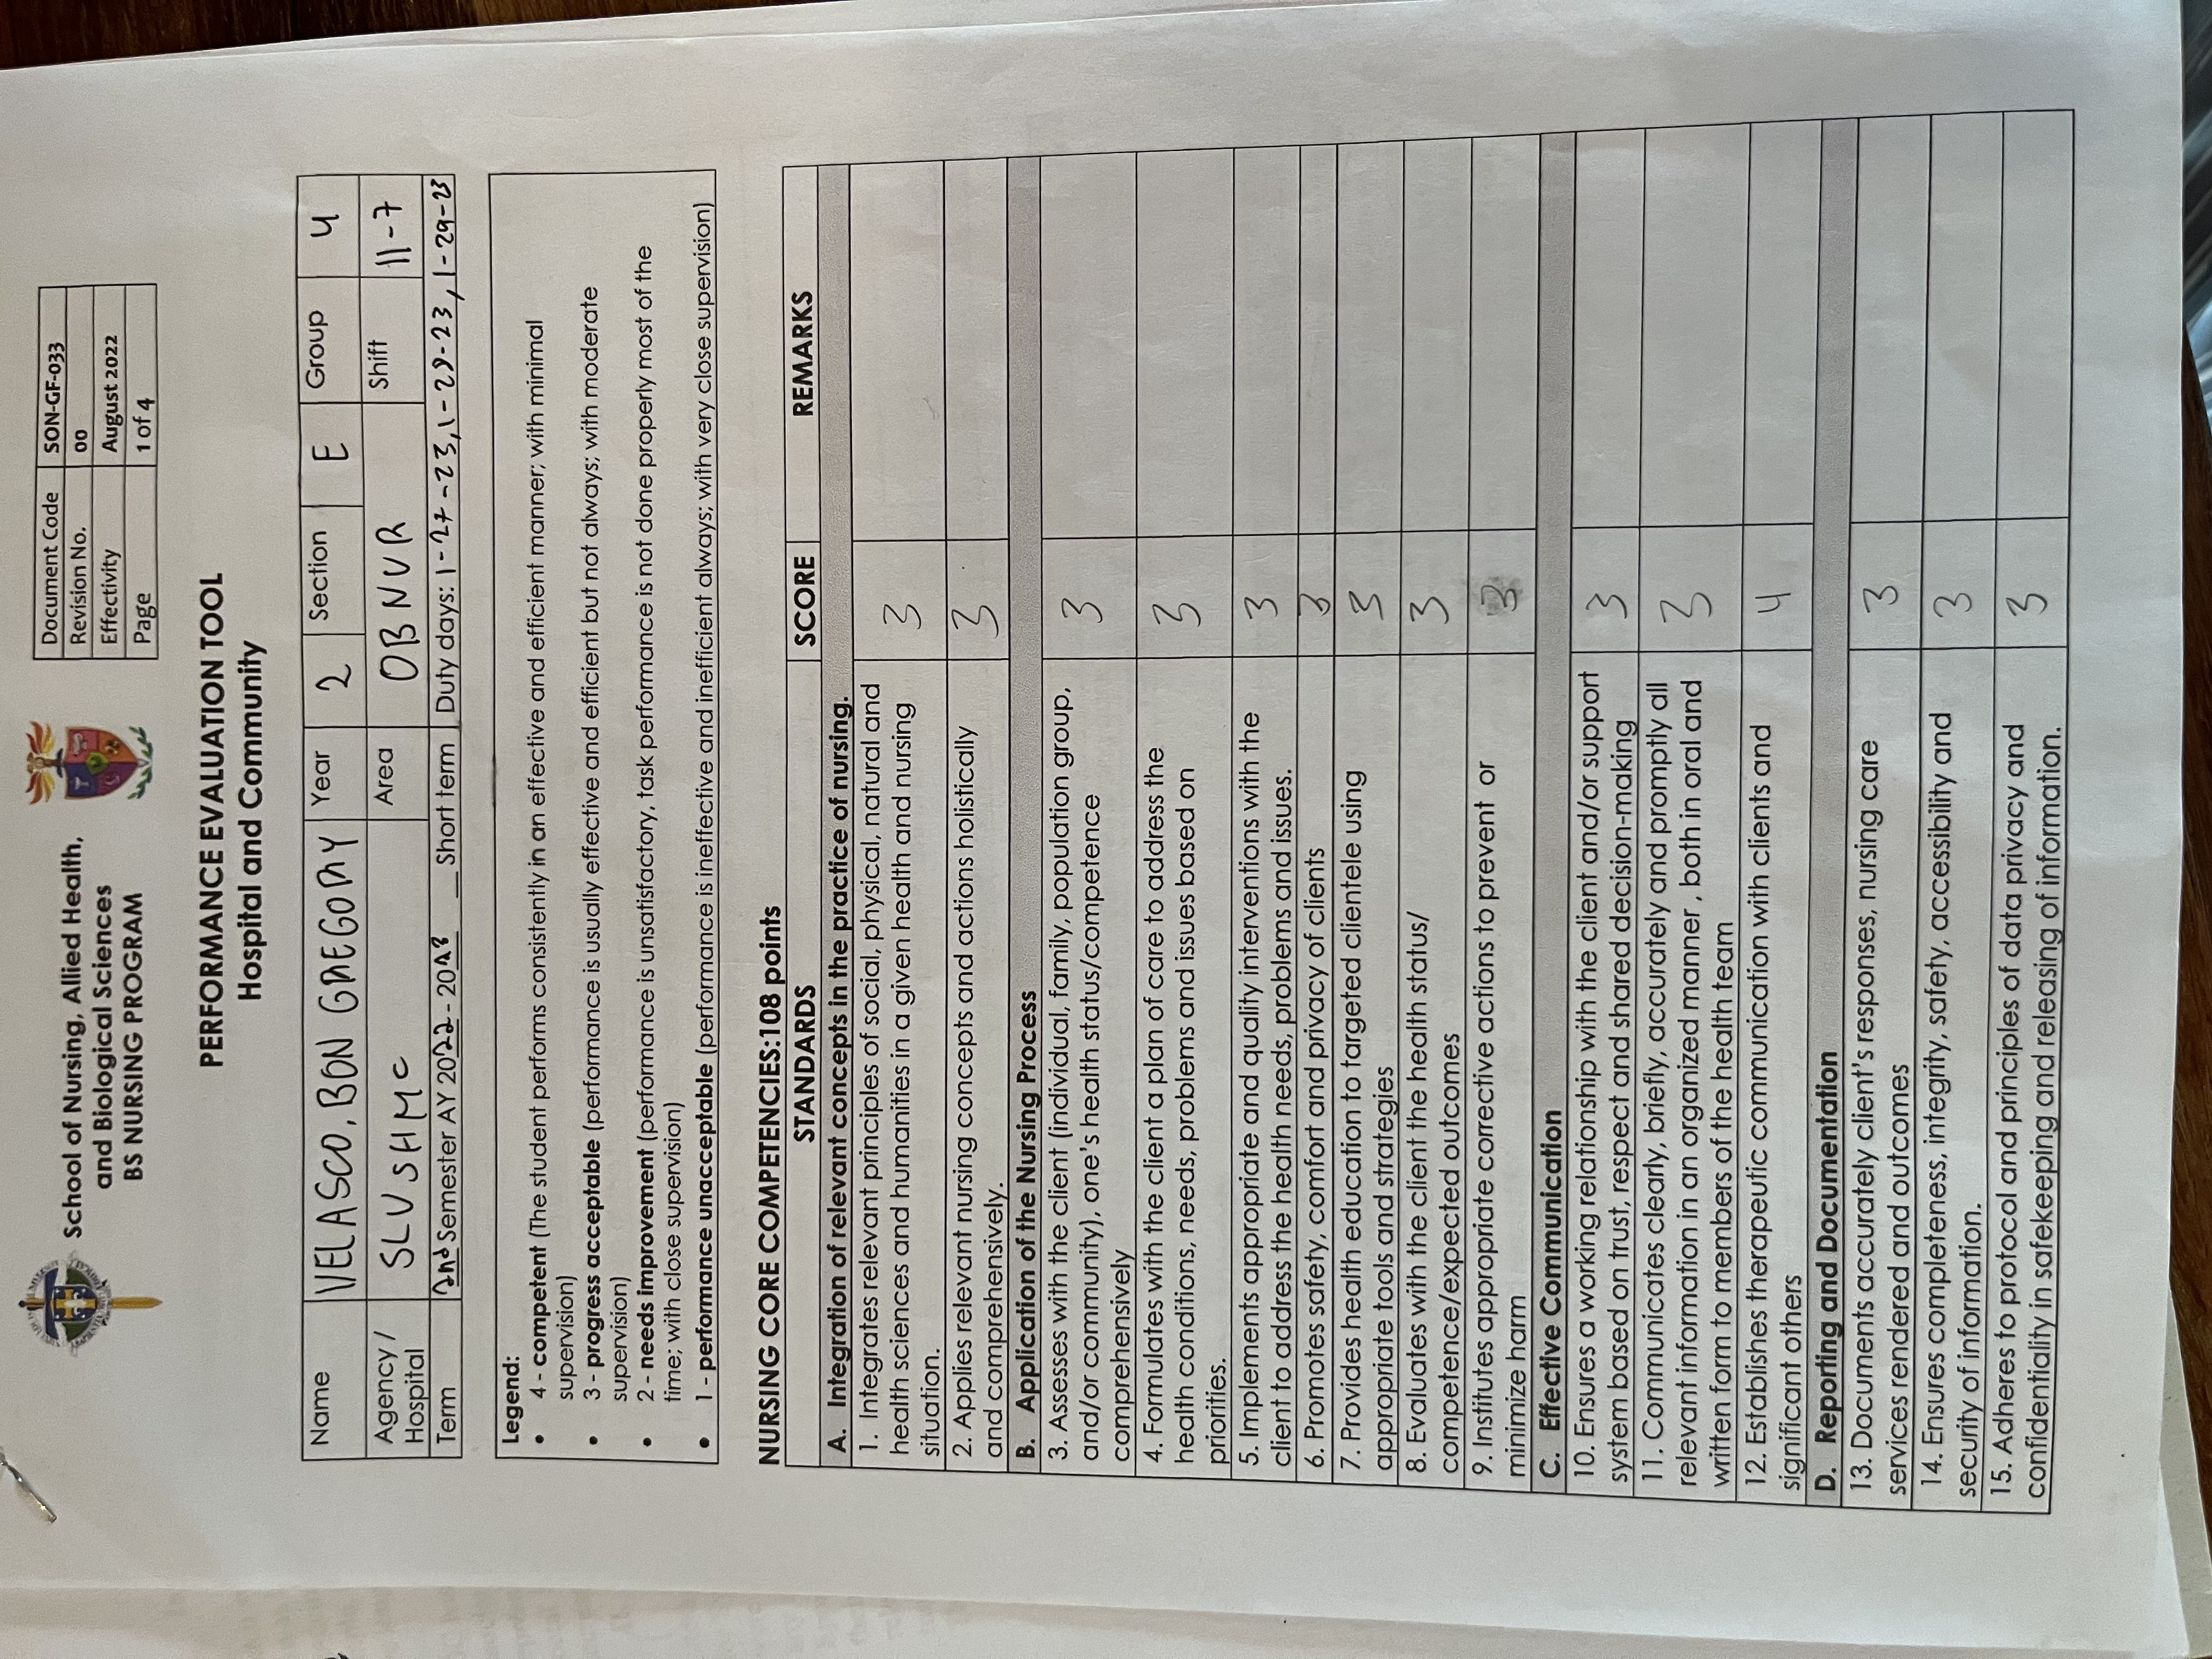 School of Nursing, Allied Health,
and Biological Sciences
BS NURSING PROGRAM
Document Code SON-GF-033
Revision No. 00
Effectivity August 2022
Page 1 of 4
PERFORMANCE EVALUATION TOOL
Hospital and Community
Name VELASCO, BON GREGORY Year 2 Section E Group 4
Agency / Hospital SLU SHMC Area OB NUR Shift 11-7
Term 2nd Semester AY 2022 - 2023 __ Short term Duty days: 1-27-23, 1-28-23, 1-29-23
Legend:
• 4 - competent (The student performs consistently in an effective and efficient manner; with minimal
supervision)
• 3 - progress acceptable (performance is usually effective and efficient but not always; with moderate
supervision)
• 2 - needs improvement (performance is unsatisfactory, task performance is not done properly most of the
time; with close supervision)
• 1 - performance unacceptable (performance is ineffective and inefficient always; with very close supervision)
NURSING CORE COMPETENCIES:108 points
STANDARDS SCORE REMARKS
A. Integration of relevant concepts in the practice of nursing.
1. Integrates relevant principles of social, physical, natural and
health sciences and humanities in a given health and nursing
situation.
3
2. Applies relevant nursing concepts and actions holistically
and comprehensively.
3
B. Application of the Nursing Process
3. Assesses with the client (individual, family, population group,
and/or community), one's health status/competence
comprehensively
3
4. Formulates with the client a plan of care to address the
health conditions, needs, problems and issues based on
priorities.
3
5. Implements appropriate and quality interventions with the
client to address the health needs, problems and issues.
3
6. Promotes safety, comfort and privacy of clients 3
7. Provides health education to targeted clientele using
appropriate tools and strategies
3
8. Evaluates with the client the health status/
competence/expected outcomes
3
9. Institutes appropriate corrective actions to prevent or
minimize harm
3
C. Effective Communication
10. Ensures a working relationship with the client and/or support
system based on trust, respect and shared decision-making
3
11. Communicates clearly, briefly, accurately and promptly all
relevant information in an organized manner , both in oral and
written form to members of the health team
3
12. Establishes therapeutic communication with clients and
significant others
4
D. Reporting and Documentation
13. Documents accurately client's responses, nursing care
services rendered and outcomes
3
14. Ensures completeness, integrity, safety, accessibility and
security of information.
3
15. Adheres to protocol and principles of data privacy and
confidentiality in safekeeping and releasing of information.
3